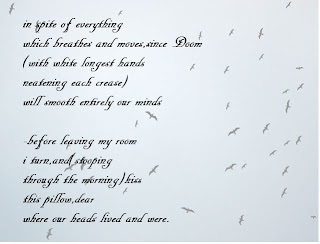 in spite of everything
which breathes and moves,since Doom
(with white longest hands
neatening each crease)
will smooth entirely our minds

-before leaving my room
i turn,and(stooping
through the morning)kiss
this pillow,dear
where our heads lived and were.